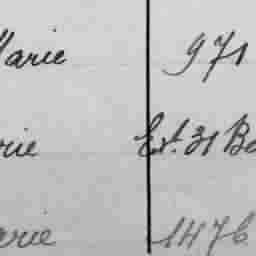 Marie 971
rie Est. 31 Ba
arie 1476